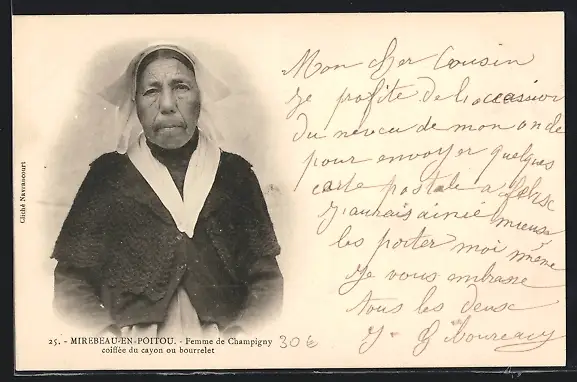 Mon cher Cousin
Je profite de l'occasion
du neveu de mon oncle
pour envoyer quelques
carte postale a
J'aurais aimé mieux
les porter moi même
Je vous embrasse
tous les deux
Cliché Navrancourt
25. - MIREBEAU-EN-POITOU. - Femme de Champigny
coiffée du cayon ou bourrelet
30€